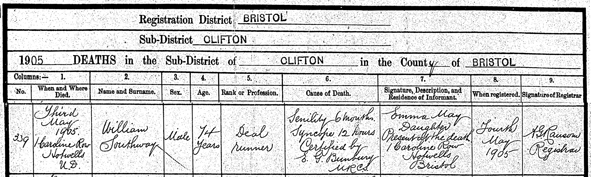 Registration District BRISTOL
Sub-District CLIFTON
1905 DEATHS in the Sub-District of CLIFTON in the County of BRISTOL
Columns:— 1. 2. 3. 4. 5. 6. 7. 8. 9.
No. When and Where Died. Name and Surname. Sex. Age. Rank or Profession. Cause of Death. Signature, Description, and Residence of Informant. When registered. Signature of Registrar
239
Third
May
1905
1 Caroline Row
Hotwells
U.D.
William
Southway
Male
74
Years
Deal
runner
Senility 6 months
Syncope 12 hours
Certified by
E. G. Bunbury
M.R.C.S.
Emma May
Daughter
Present at the death
1 Caroline Row
Hotwells
Bristol
Fourth
May
1905
Ransom
Registrar